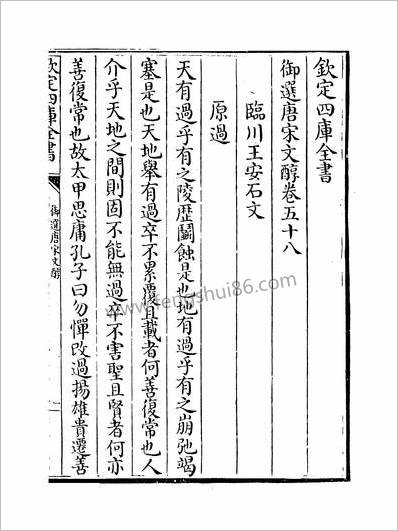 欽定四庫全書
御選唐宋文醇卷五十八
臨川王安石文
原過
天有過乎有之陵歷鬭蝕是也地有過乎有之崩弛竭
塞是也天地舉有過卒不累覆且載者何善復常也人
介乎天地之間則固不能無過卒不害聖且賢者何亦
善復常也故太甲思庸孔子曰勿憚改過揚雄貴遷善
欽定四庫全書
御選唐宋文醇
一
www.fengshui86.com